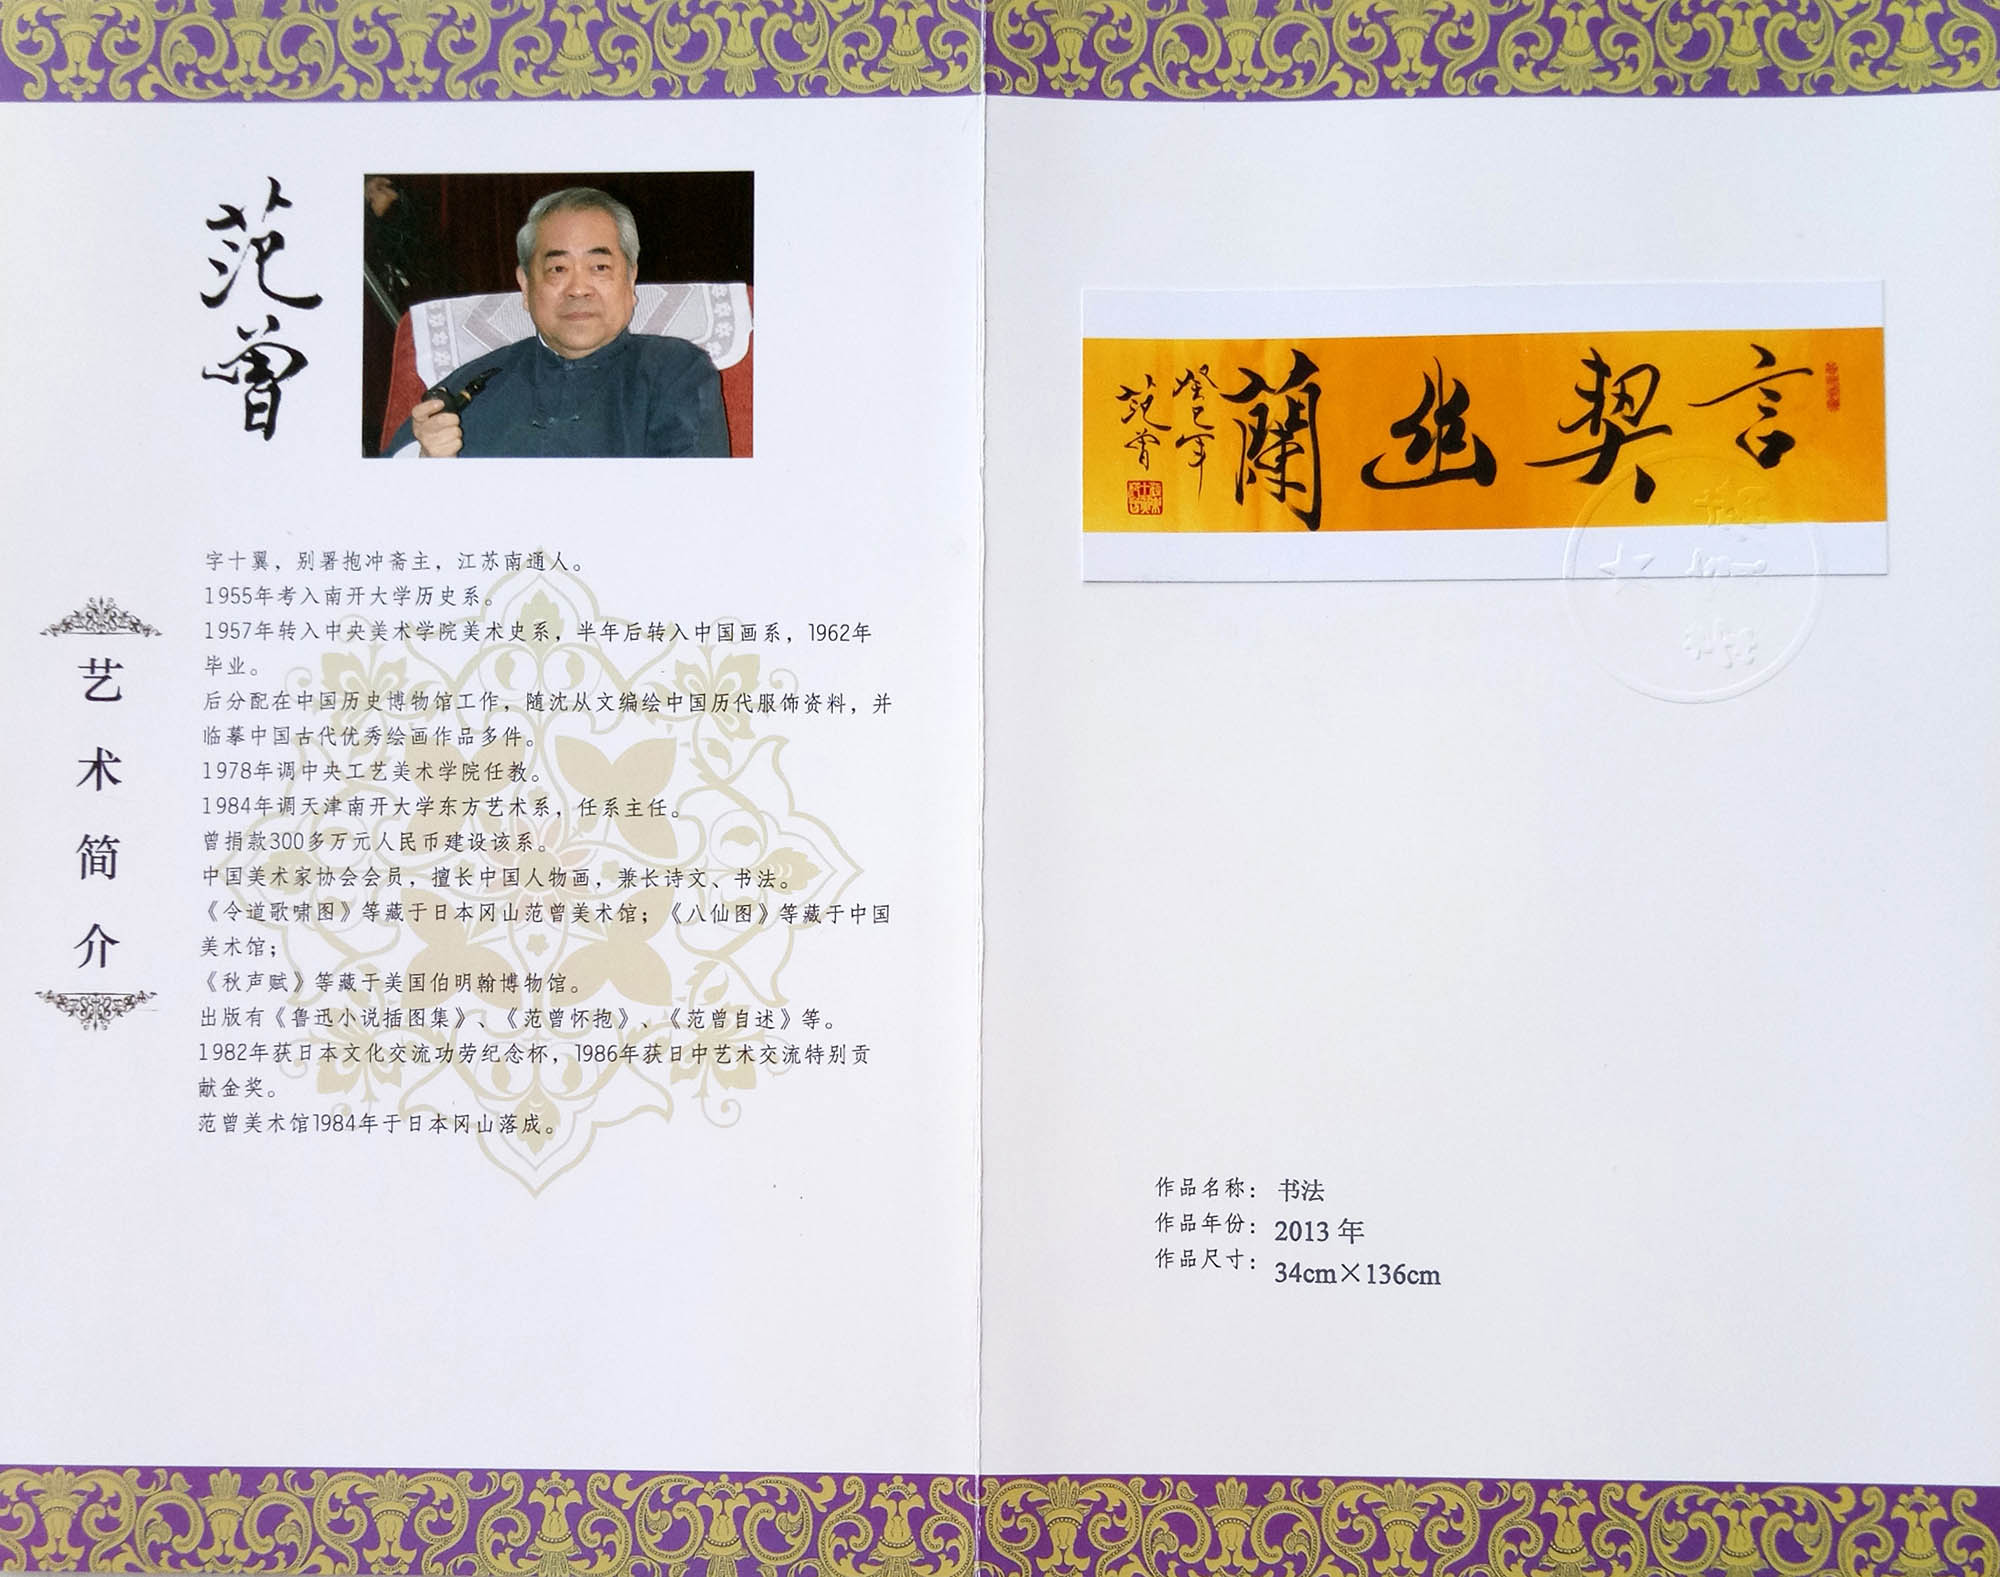 范曾
艺术简介
字十翼，别署抱冲斋主，江苏南通人。
1955年考入南开大学历史系。
1957年转入中央美术学院美术史系，半年后转入中国画系，1962年
毕业。
后分配在中国历史博物馆工作，随沈从文编绘中国历代服饰资料，并
临摹中国古代优秀绘画作品多件。
1978年调中央工艺美术学院任教。
1984年调天津南开大学东方艺术系，任系主任。
曾捐款300多万元人民币建设该系。
中国美术家协会会员，擅长中国人物画，兼长诗文、书法。
《令道歌啸图》等藏于日本冈山范曾美术馆；《八仙图》等藏于中国
美术馆；
《秋声赋》等藏于美国伯明翰博物馆。
出版有《鲁迅小说插图集》、《范曾怀抱》、《范曾自述》等。
1982年获日本文化交流功劳纪念杯，1986年获日中艺术交流特别贡
献金奖。
范曾美术馆1984年于日本冈山落成。
言契幽蘭
癸巳年
范曾
作品名称：书法
作品年份：2013 年
作品尺寸：34cm×136cm